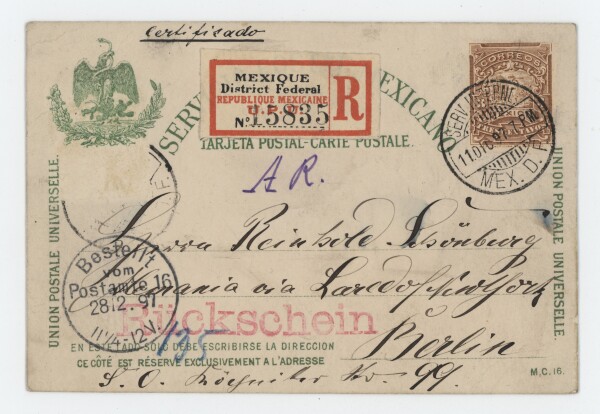 Certificado
MEXIQUE
District Federal
REPUBLIQUE MEXICAINE
U.P.U.
No. 15835
R
SERV MEXICANO
TARJETA POSTAL-CARTE POSTALE.
CORREOS
MEXICO
SERV. INTERNL.
11 DIC 97 1 PM.
MEX. D. F.
A R.
UNION POSTALE UNIVERSELLE.
UNION POSTALE UNIVERSELLE.
Herrn Reinhold Schönburg
via Laredo New York
Bestellt
vom
Postamte 16
28.12.97
11¼-12V.
Rückschein
135
Berlin
EN ESTE LADO SOLO DEBE ESCRIBIRSE LA DIRECCION
CE CÔTÉ EST RÉSERVE EXCLUSIVEMENT A L'ADRESSE
S. O. No. 99.
M.C. 16.